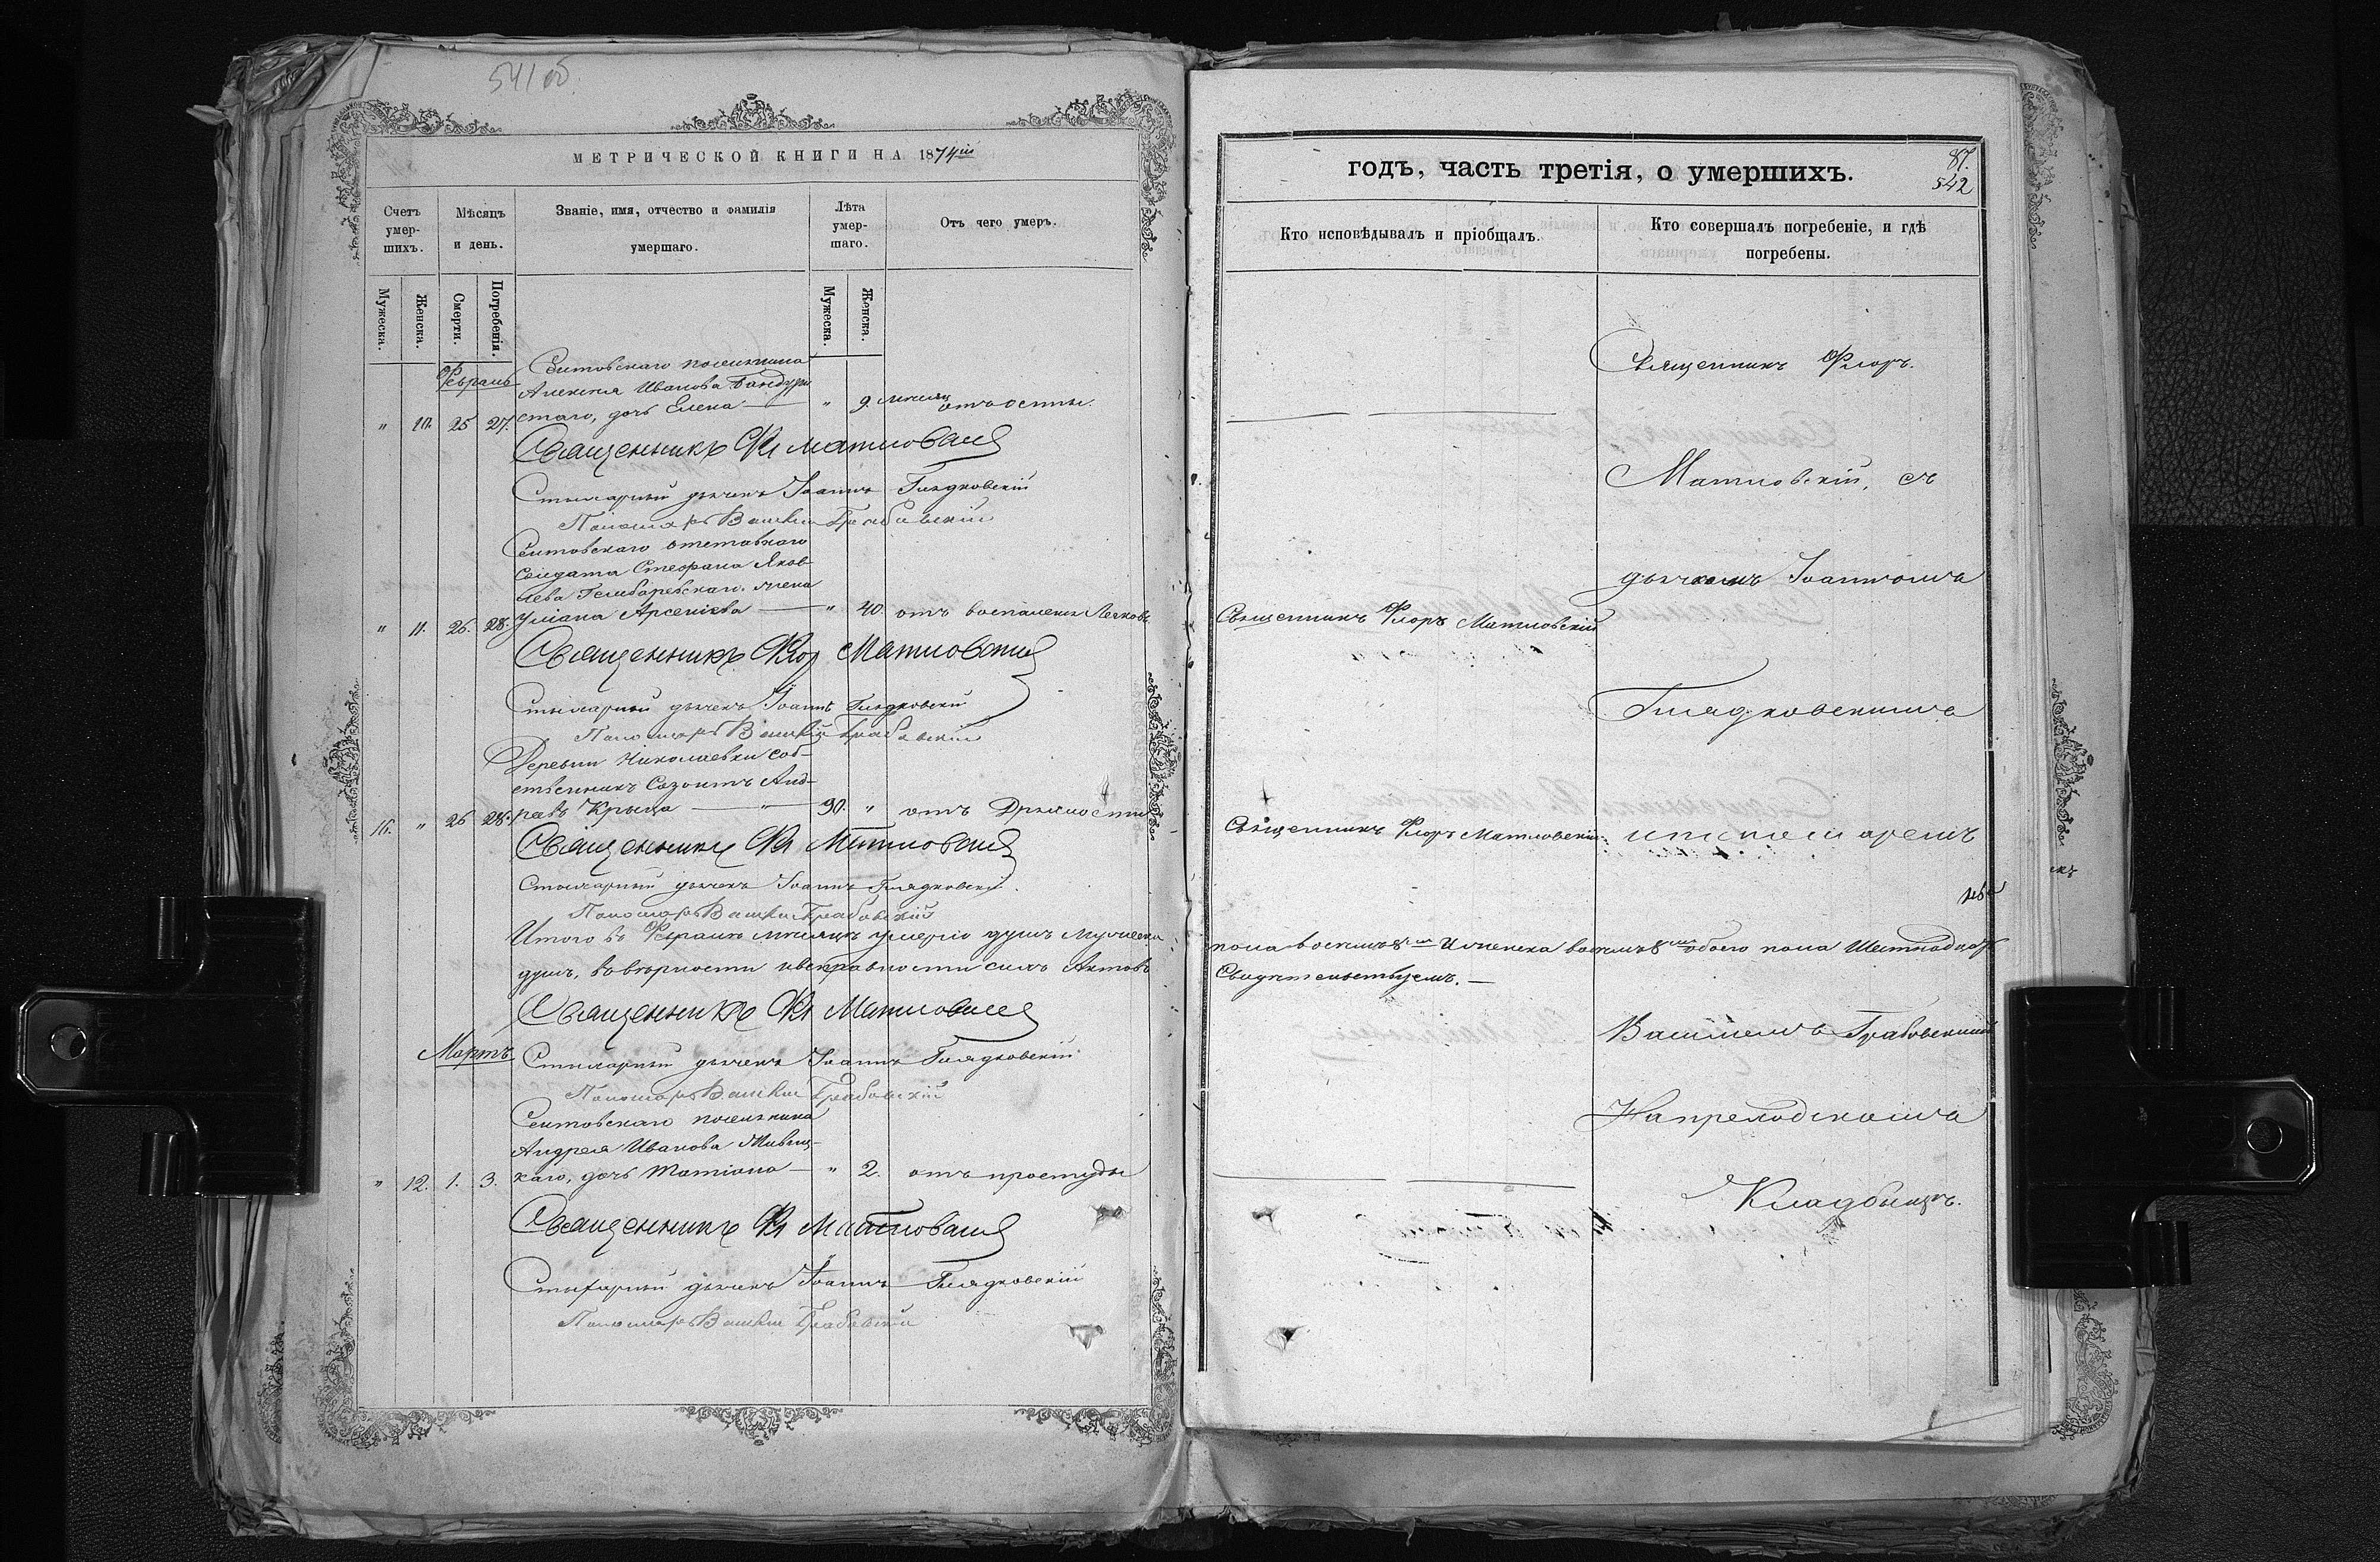 541 об.
МЕТРИЧЕСКОЙ КНИГИ НА 1874й
Счетъ умер-шихъ.
Мѣсяцъ и день.
Званіе, имя, отчество и фамилія умершаго.
Лѣта умер-шаго.
Отъ чего умеръ.
Мужеска.
Женска.
Смерти.
Погребенія.
Мужеска.
Женска.
Февраль
Сентовскаго поселянина
Алексея Иванова Бандур
" 10. 25 27. стаго, дочь Елена — " 9 месяц отъ оспы.
Священникъ Фл Матловскій
Стихарный дьячекъ Іоаннъ Глядковскій
Пономарь Василій Грабовскій
Сентовскаго отставнаго
Солдата Стефана Яков-
лева жена
" 11. 26. 28. Улiана Арсенiева — " 40. отъ воспаленія Легковъ
Священникъ Флор Матловскій
Стихарный дьячекъ Іоаннъ Глядковскій
Пономарь Василій Грабовскій
Деревни Николаевки соб-
ственникъ Созонтъ Анд-
16. " 26 28. реевъ Крыца — " — 90. " отъ Дряхлости
Священникъ Фл Матловскій
Стихарный дьячекъ Іоаннъ Глядковскій.
Пономарь Василій Грабовскій
Итого въ Февралѣ месяцѣ умерло душъ мужеска
душъ, въ вѣрности и исправности сихъ Актовъ
Священникъ Фл Матловскій
Мартъ
Стихарный дьячекъ Іоаннъ Глядковскій
Пономарь Василій Грабовскій
Сентовскаго поселянина
Андрея Иванова
" 12. 1. 3. каго, дочь Татіана — " 2. отъ простуды
Священникъ Фл Матловскій
Стихарный дьячекъ Іоаннъ Глядковскій
Пономарь Василій Грабовскій
годъ, часть третія, о умершихъ.
87.
542
Кто исповѣдывалъ и пріобщалъ.
Кто совершалъ погребеніе, и гдѣ погребены.
Священникъ Флоръ
Матловскій, съ
дьячкомъ Іоанномъ
Священникъ Флоръ Матловскій
Глядковскимъ
Священникъ Флоръ Матловскій
и пономаремъ
пола восемь 8 и женска восемь 8 обоего пола Шестнадцать
Свидѣтельствуемъ. —
Василіемъ Грабовскимъ
На приходскомъ
Кладбищѣ.